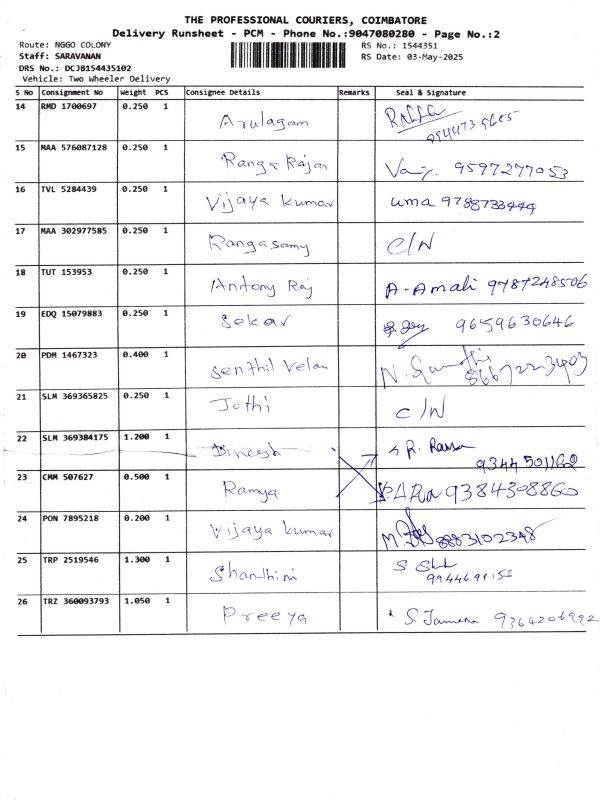 THE PROFESSIONAL COURIERS, COIMBATORE
Delivery Runsheet - PCM - Phone No.:9047080280 - Page No.:2
Route: NGGO COLONY RS No.: 1544351
Staff: SARAVANAN RS Date: 03-May-2025
DRS No.: DCJB154435102
Vehicle: Two Wheeler Delivery
S No Consignment No Weight PCS Consignee Details Remarks Seal & Signature
14 RMD 1700697 0.250 1 Arulagam
15 MAA 576087128 0.250 1 Ranga Rajan 9597277053
16 TVL 5284439 0.250 1 Vijaya Kumar uma 9788733444
17 MAA 302977585 0.250 1 Rangasamy C/N
18 TUT 153953 0.250 1 Antony Raj A-Amali 9787248506
19 EDQ 15079883 0.250 1 Sekar 9659630646
20 PDM 1467323 0.400 1 Senthil Velan
21 SLM 369365825 0.250 1 Jothi C/N
22 SLM 369384175 1.200 1 Dinesh 9344501162
23 CMM 507627 0.500 1 Ramya 9384308860
24 PON 7895218 0.200 1 Vijaya Kumar 8883102348
25 TRP 2519546 1.300 1 Shanthini
26 TRZ 360093793 1.050 1 Preeya 9364206992